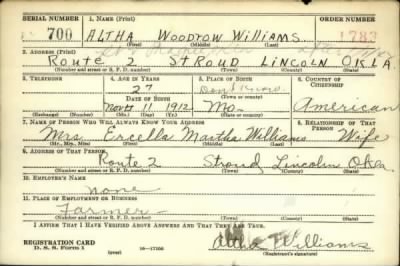 SERIAL NUMBER 1. NAME (Print) ORDER NUMBER
700 ALTHA WOODROW WILLIAMS 1783
(First) (Middle) (Last)
2. ADDRESS (Print)
ROUTE 2 STROUD LINCOLN OKLA.
(Number and street or R. F. D. number) (Town) (County) (State)
3. TELEPHONE 4. AGE IN YEARS 5. PLACE OF BIRTH 6. COUNTRY OF CITIZENSHIP
27 Don't Know
DATE OF BIRTH (Town or county)
Nov. 11 1912 Mo. American
(Exchange) (Number) (Mo.) (Day) (Yr.) (State or country)
7. NAME OF PERSON WHO WILL ALWAYS KNOW YOUR ADDRESS 8. RELATIONSHIP OF THAT PERSON
Mrs. Ercella Martha Williams Wife
(Mr., Mrs., Miss) (First) (Middle) (Last)
9. ADDRESS OF THAT PERSON
Route 2 Stroud Lincoln Okla.
(Number and street or R. F. D. number) (Town) (County) (State)
10. EMPLOYER'S NAME
none
11. PLACE OF EMPLOYMENT OR BUSINESS
Farmer
(Number and street or R. F. D. number) (Town) (County) (State)
I AFFIRM THAT I HAVE VERIFIED ABOVE ANSWERS AND THAT THEY ARE TRUE.
REGISTRATION CARD
D. S. S. Form 1 (over) Altha Williams
(Registrant's signature)